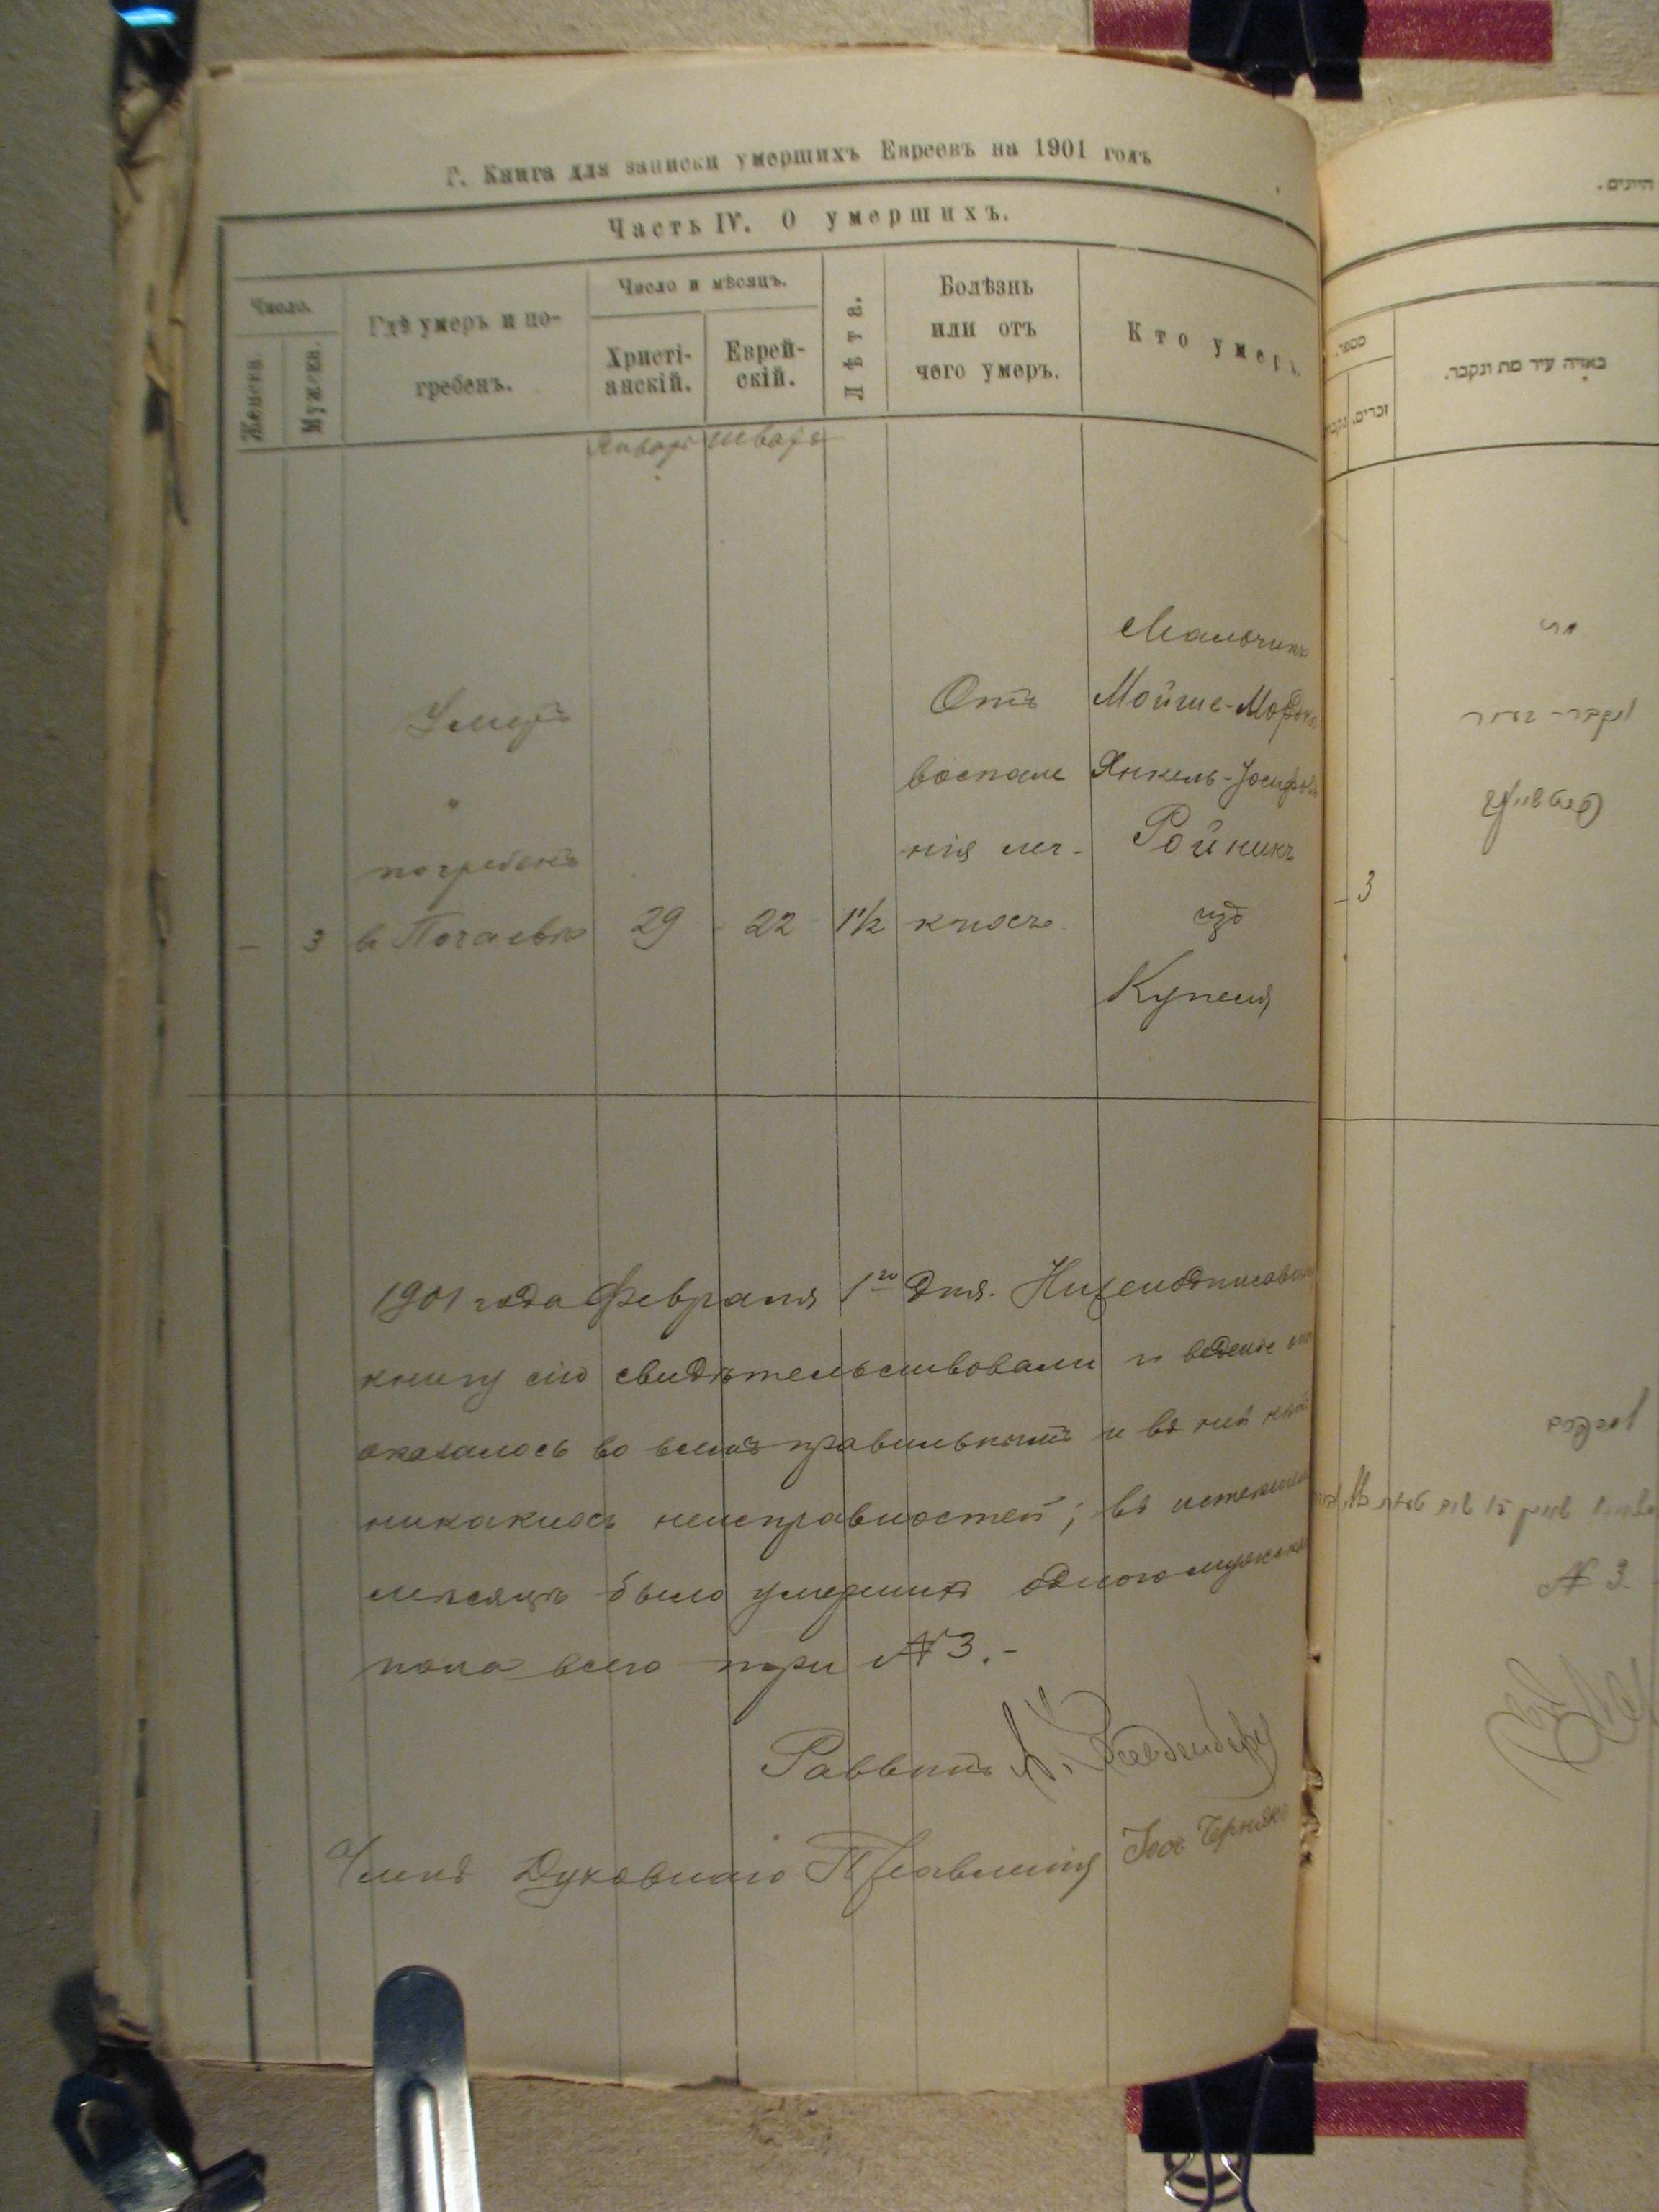 Г. Книга для записки умершихъ Евреевъ на 1901 годъ
Часть IV. О умершихъ.
Число.
Женск.
Мужеск.
Гдѣ умеръ и по-
гребенъ.
Число и мѣсяцъ.
Христі-
анскій.
Еврей-
скій.
Лѣта.
Болѣзнь
или отъ
чего умеръ.
Кто умеръ.
Январь
Шваръ
—
3
Умеръ
и
погребенъ
въ Почаевѣ
29
22
1 1/2
Отъ
воспале
нія лег-
кихъ
Мальчикъ
Мойше-Мордко
Янкель-Іосифовъ
Ройникъ
изъ
Купеля
1901 года Февраля 1го дня. Нижеподписавш
книгу сію свидѣтельствовали и веденіе
оказалось во всемъ правильнымъ и въ ней
никакихъ неисправностей; въ истекшемъ
мѣсяцѣ было умершихъ одного мужскаго
пола всего три №3.-
Раввинъ
Членъ Духовнаго Правленія
היונים.
מספר.
זכרים.
נקבו
באיזה עיר מת ונקבר.
3
№ 3.